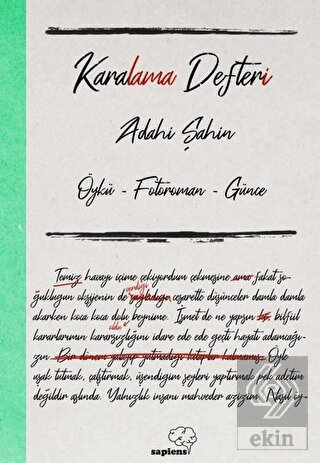 Karalama Defteri
Adahi Şahin
Öykü - Fotoroman - Günce
Temiz havayı içime çekiyordum çekmesine ama fakat so-
verdiği
ğukluğun oksijenin de sağladığı cesaretle düşünceler damla damla
akarken koca koca dolu beynime. İsmet de ne yapsın
bilfiil
oldu
kararlarımın kararsızlığını idare ede ede geçti hayatı adamcağı-
zın. Bir dönem
kitaplar kalmamış. Öyle
uşak tutmak, çalıştırmak, üşendiğim şeyleri yaptırmak pek adetim
değildir aslında. Yalnızlık insanı mahveder azizim. Nasıl iy-
sapiens
ekin